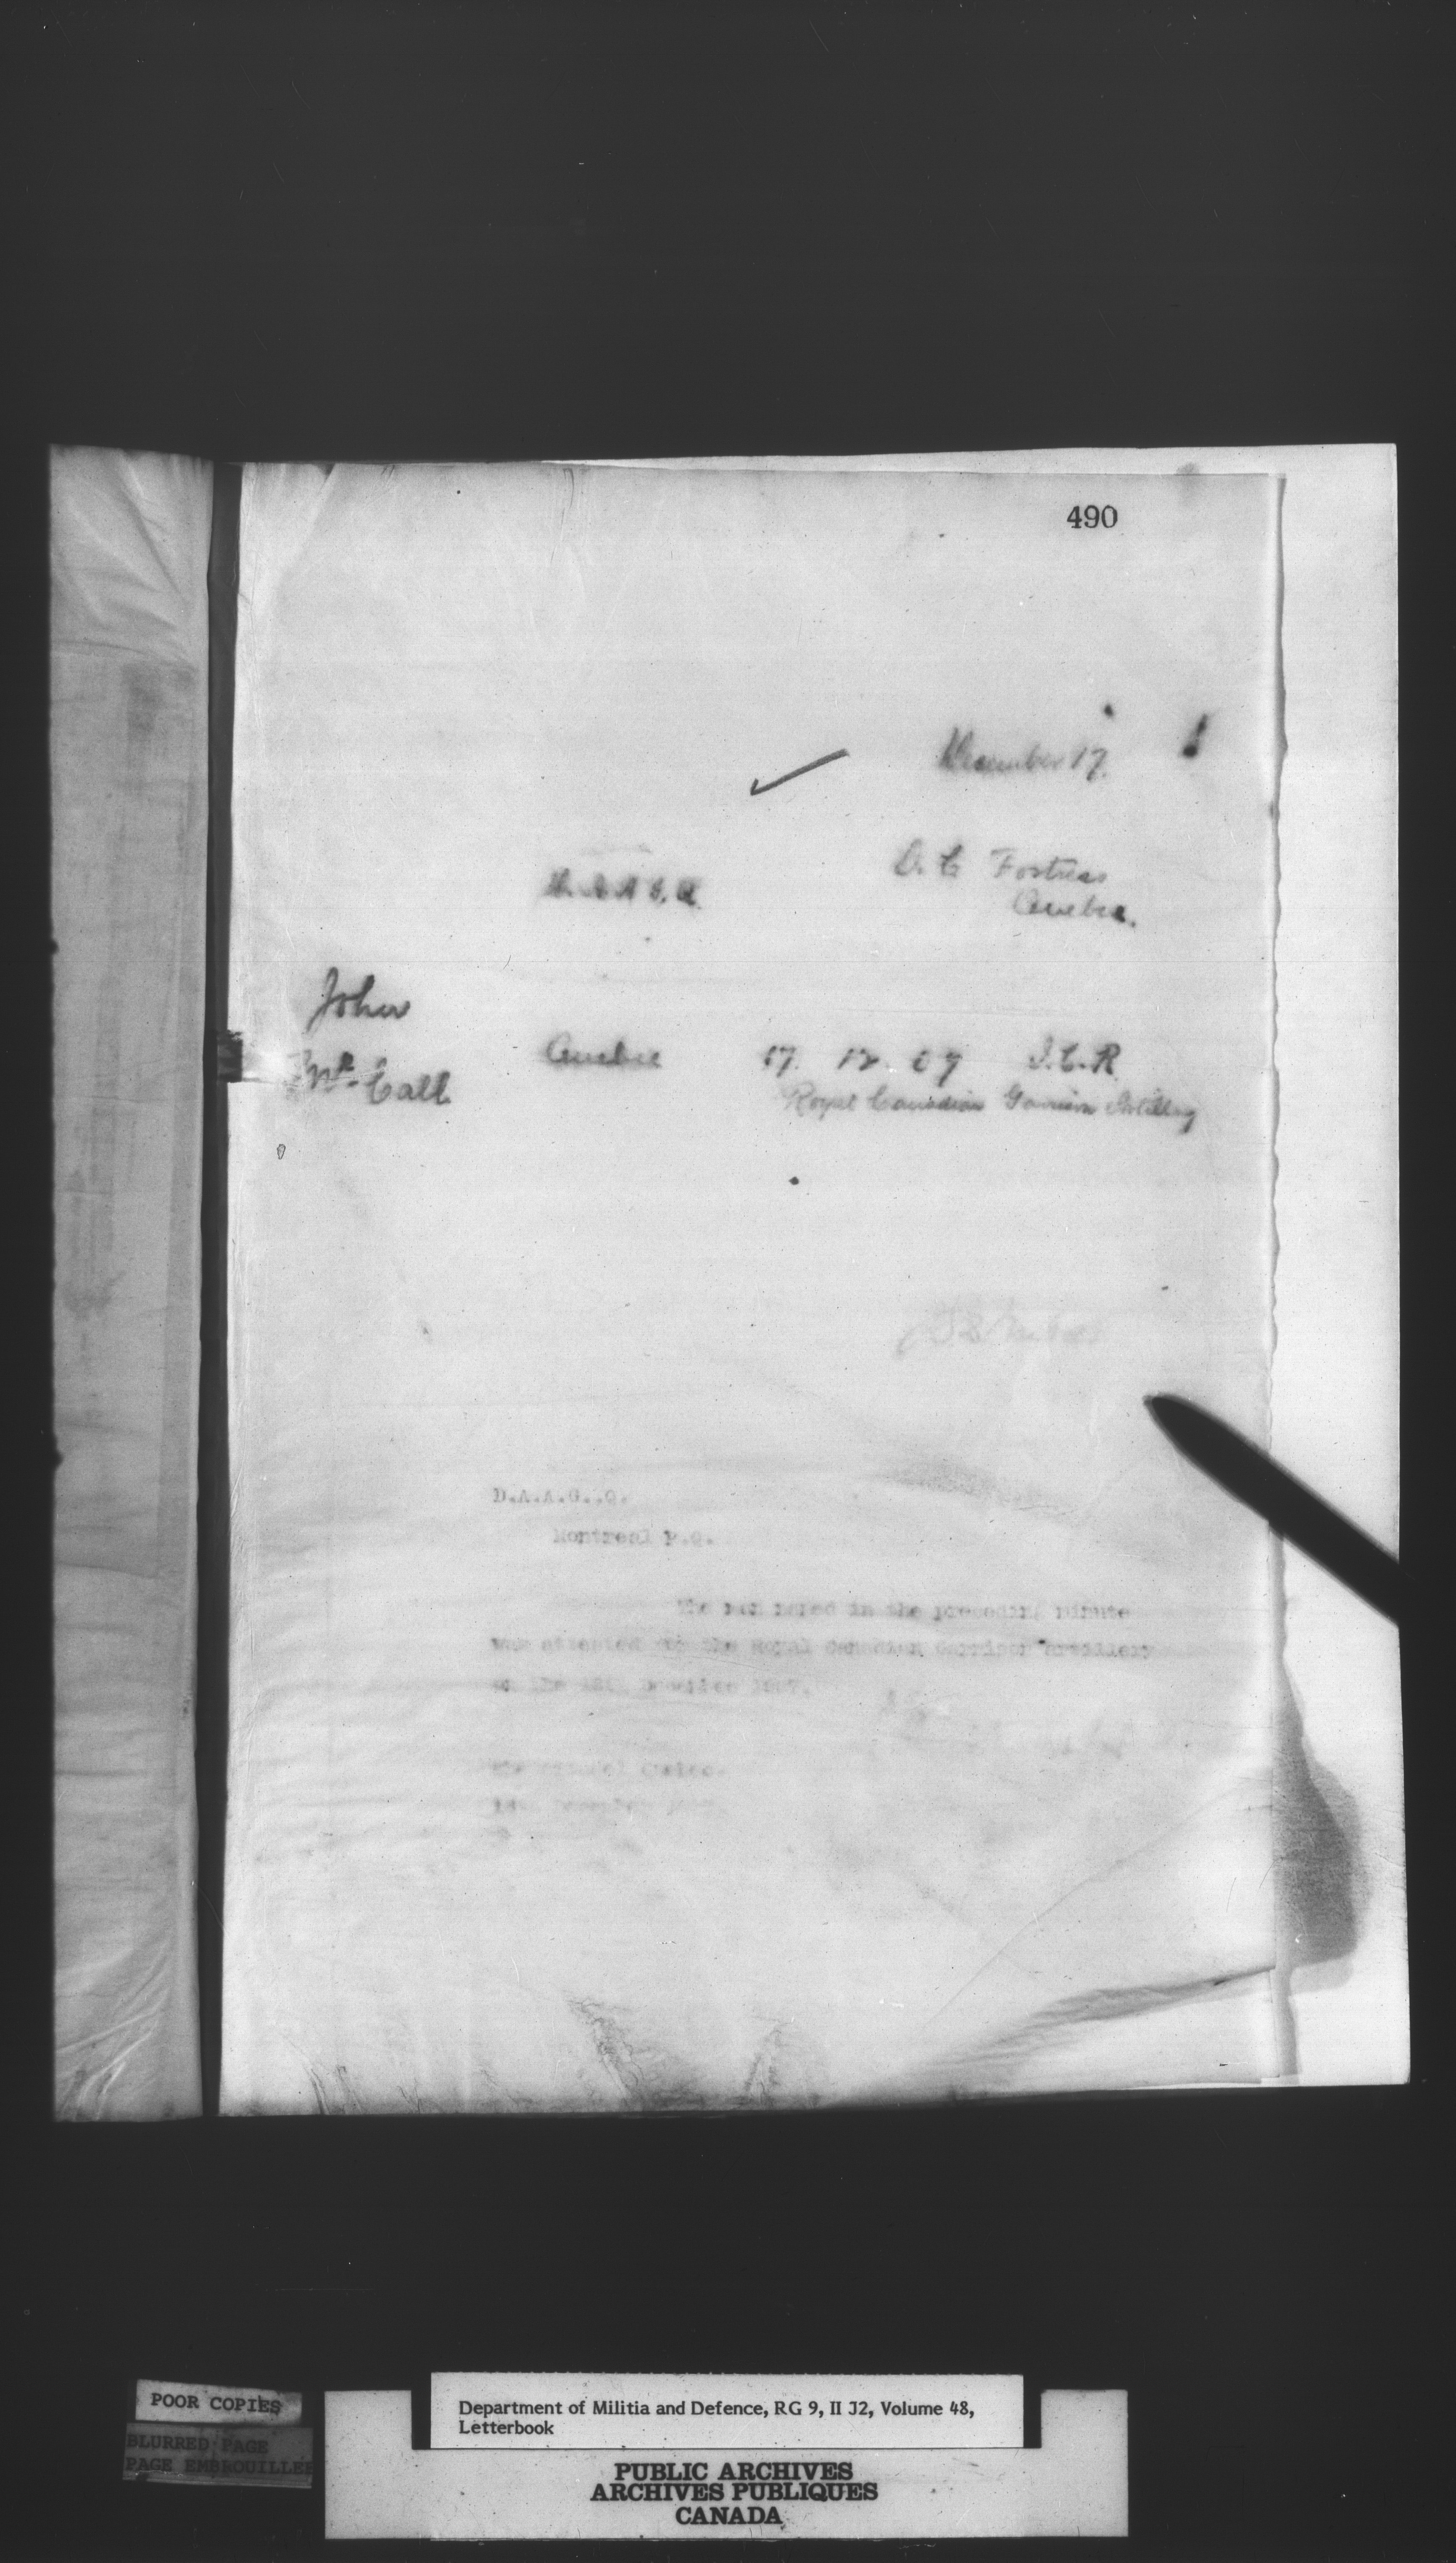 490
December 17.
D.A.A.G.Q.
O. C Fortress
Quebec.
John
McCall
Quebec 17. 12. 07 I.C.R
Royal Canadian Garrison Artillery
D.A.A.G..Q.
Montreal P.Q.
The man named in the preceding minute
was attested to the Royal Canadian Garrison Artillery
on the December 1907.
Citadel Quebec.
POOR COPIES
BLURRED PAGE
PAGE EMBROUILLEE
Department of Militia and Defence, RG 9, II J2, Volume 48,
Letterbook
PUBLIC ARCHIVES
ARCHIVES PUBLIQUES
CANADA